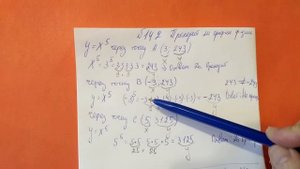 №142 Проходит ли график функ
y = x⁵ через точку A (3; 243)
x⁵ = 3⁵ = 3·3·3·3·3 = 243 Ответ: Да проходит
через точку B (-3; 243) 243 ≠ -2
y = x⁵ (-3)⁵ = -3·(-3)·(-3)·(-3) = -243 Ответ: Не
через точку C (5; 3125)
y = x⁵
5⁵ = 5·5·5·5·5 = 3125 Ответ: Да
25 25 y